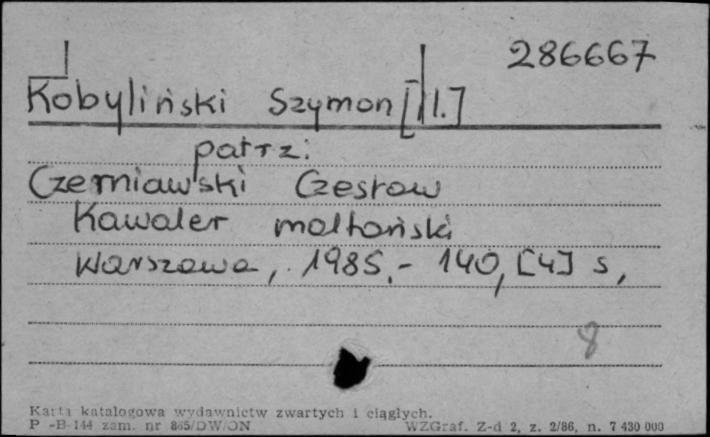 286667
Kobyliński Szymon [Il.]
patrz:
Czerniawski Czesław
Kawaler maltański
Warszawa, 1985.- 140, [4] s,
8
Karta katalogowa wydawnictw zwartych i ciągłych.
P -B-144 zam. nr 865/DW/ON WZGraf. Z-d 2, z. 2/86, n. 7 430 000